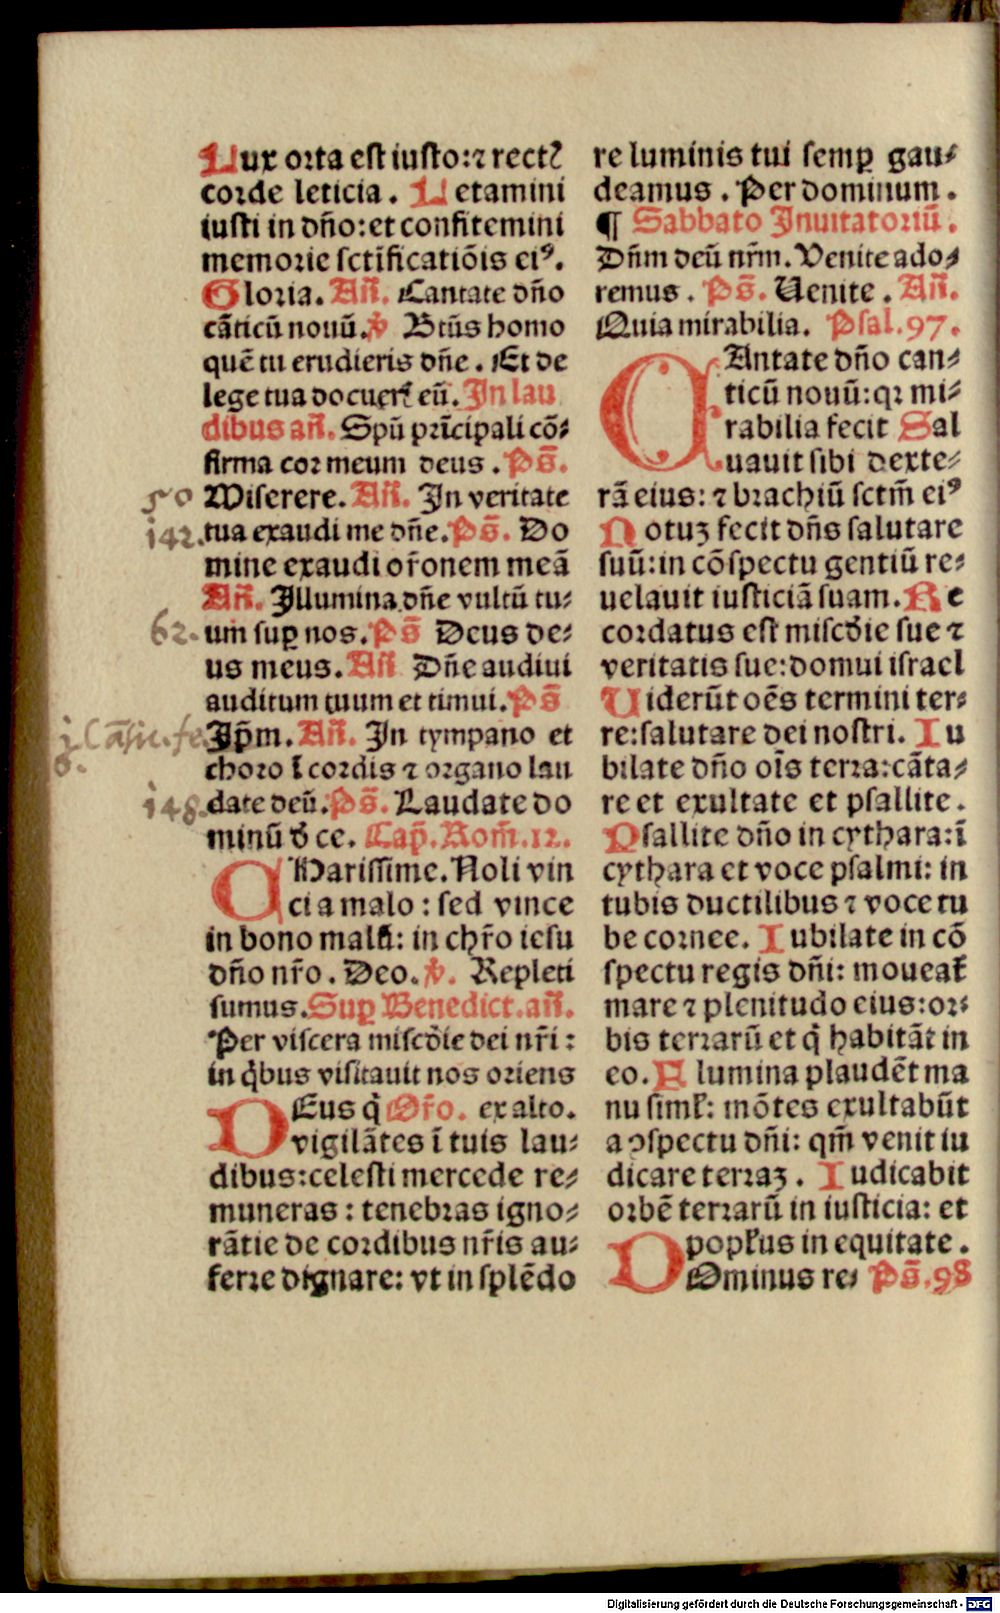 Lux orta est iusto: ⁊ rect
corde leticia. Letamini
iusti in dño: et confitemini
memorie sctīficatiõis eiꝰ.
Gloria. Añ. Cantate dño
cãticũ nouũ. ꝟ Btũs homo
quẽ tu erudieris dñe. Et de
lege tua docuer̃ eũ. In lau
dibus añ. Spũ prīcipali cõ⸗
firma cor meum deus. Ps̃.
50 Miserere. Añ. In veritate
142. tua exaudi me dñe. Ps̃. Do
mine exaudi or̃onem meã
Añ. Illumina dñe vultũ tu⸗
62. um suꝑ nos. Ps̃ Deus de⸗
us meus. Añ Dñe audiui
auditum tuum et timui. Ps̃
Ip̃m. Añ. In tympano et
choro ĩ cordis ⁊ organo lau
148. date deũ. Ps̃. Laudate do
minũ ð ce. Cap̃. Rom̃. 12.
CHarissime. Noli vin
ci a malo: sed vince
in bono malũ: in chr̃o iesu
dño nr̃o. Deo. ꝟ. Repleti
sumus. Suꝑ Benedict. añ.
Per viscera miscðie dei nr̃i:
in q̇bus visitauit nos oriens
DEus q̇ Or̃o. ex alto.
vigilãtes ĩ tuis lau⸗
dibus: celesti mercede re⸗
muneras: tenebras igno⸗
rãtie de cordibus nr̃is au⸗
ferre dignare: vt in splẽdo
re luminis tui semꝑ gau⸗
deamus. Per dominum.
¶ Sabbato Inuitatoriũ.
Dñm deũ nr̃m. Venite ado⸗
remus. Ps̃. Uenite. Añ.
Quia mirabilia. Psal. 97.
CAntate dño can⸗
ticũ nouũ: qꝛ mi⸗
rabilia fecit Sal
uauit sibi dexte⸗
rã eius: ⁊ brachiũ sctm̃ eiꝰ
Notuꝫ fecit dñs salutare
suũ: in cõspectu gentiũ re⸗
uelauit iusticiã suam. Re
cordatus est miscðie sue ⁊
veritatis sue: domui israel
Uiderũt oẽs termini ter⸗
re: salutare dei nostri. Iu
bilate dño oĩs terra: cãta⸗
re et exultate et psallite.
Psallite dño in cythara: ĩ
cythara et voce psalmi: in
tubis ductilibus ⁊ voce tu
be cornee. Iubilate in cõ
spectu regis dñi: moueat̃
mare ⁊ plenitudo eius: or⸗
bis terrarũ et q̇ habitãt in
eo. Flumina plaudẽt ma
nu siml̃: mõtes exultabũt
a ↄspectu dñi: qm̃ venit iu
dicare terraꝫ. Iudicabit
orbẽ terrarũ in iusticia: et
popl̃us in equitate.
DOminus re⸗ Ps̃. 98
Digitalisierung gefördert durch die Deutsche Forschungsgemeinschaft - DFG